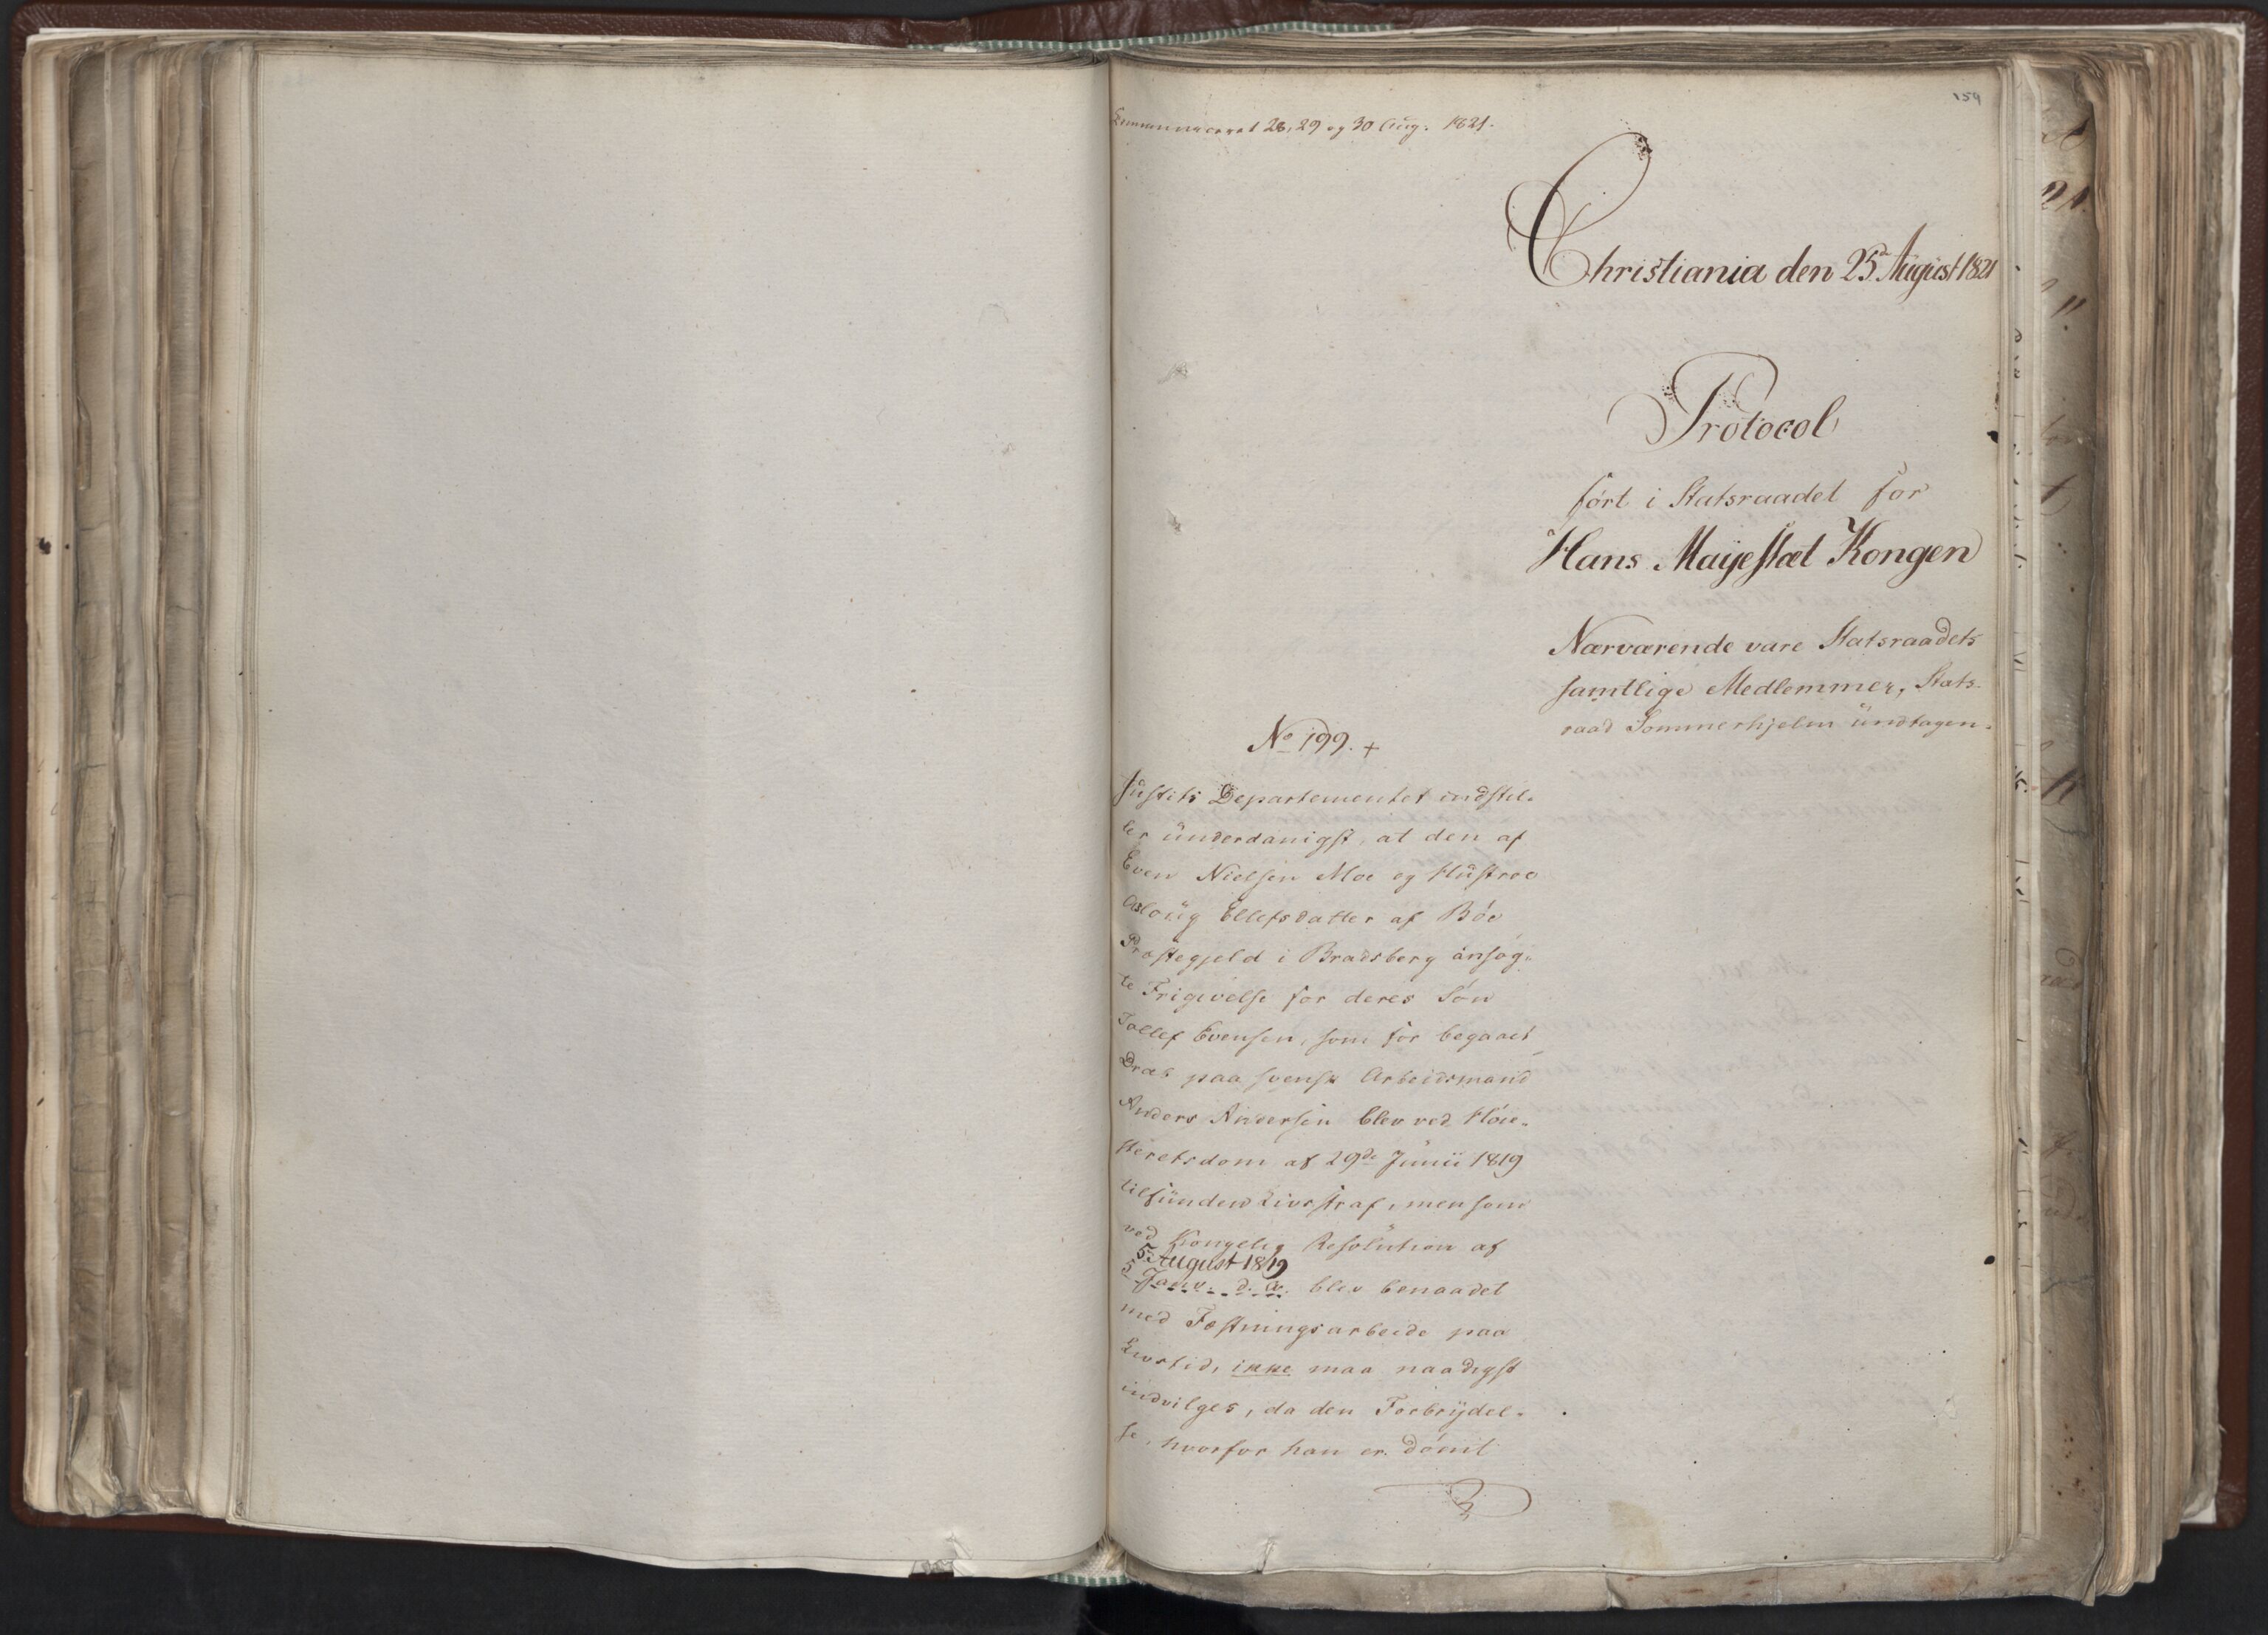 159
Communiceret 28, 29 og 30 Aug. 1821.
Christiania den 25de August 1821
Protocol
ført i Statsraadet for
Hans Mayestæt Kongen
Nærværende vare Statsraadets
samtlige Medlemmer, Stats-
raad Sommerhjelm undtagen.
No 199. +
Justits Departementet indstil-
ler underdanigst, at den af
Even Nielsen Moe og Hustroe
Asloug Ellefsdatter af Böe
Præstegjeld i Bradsberg ansøg-
te Frigivelse for deres Sön
Tollef Evensen, som for begaaet
Drab paa svensk Arbeidsmand
Anders Andersen blev ved Höie-
steretsdom af 29de Junii 1819
tilfunden Livsstraf, men som
ved Kongelig Resolution af
5 August 1819
5 Janv. d. A. blev benaadet
med Fæstningsarbeide paa
Livstid, ikke maa naadigst
indvilges, da den Forbrydel-
se, hvorfor han er dömt